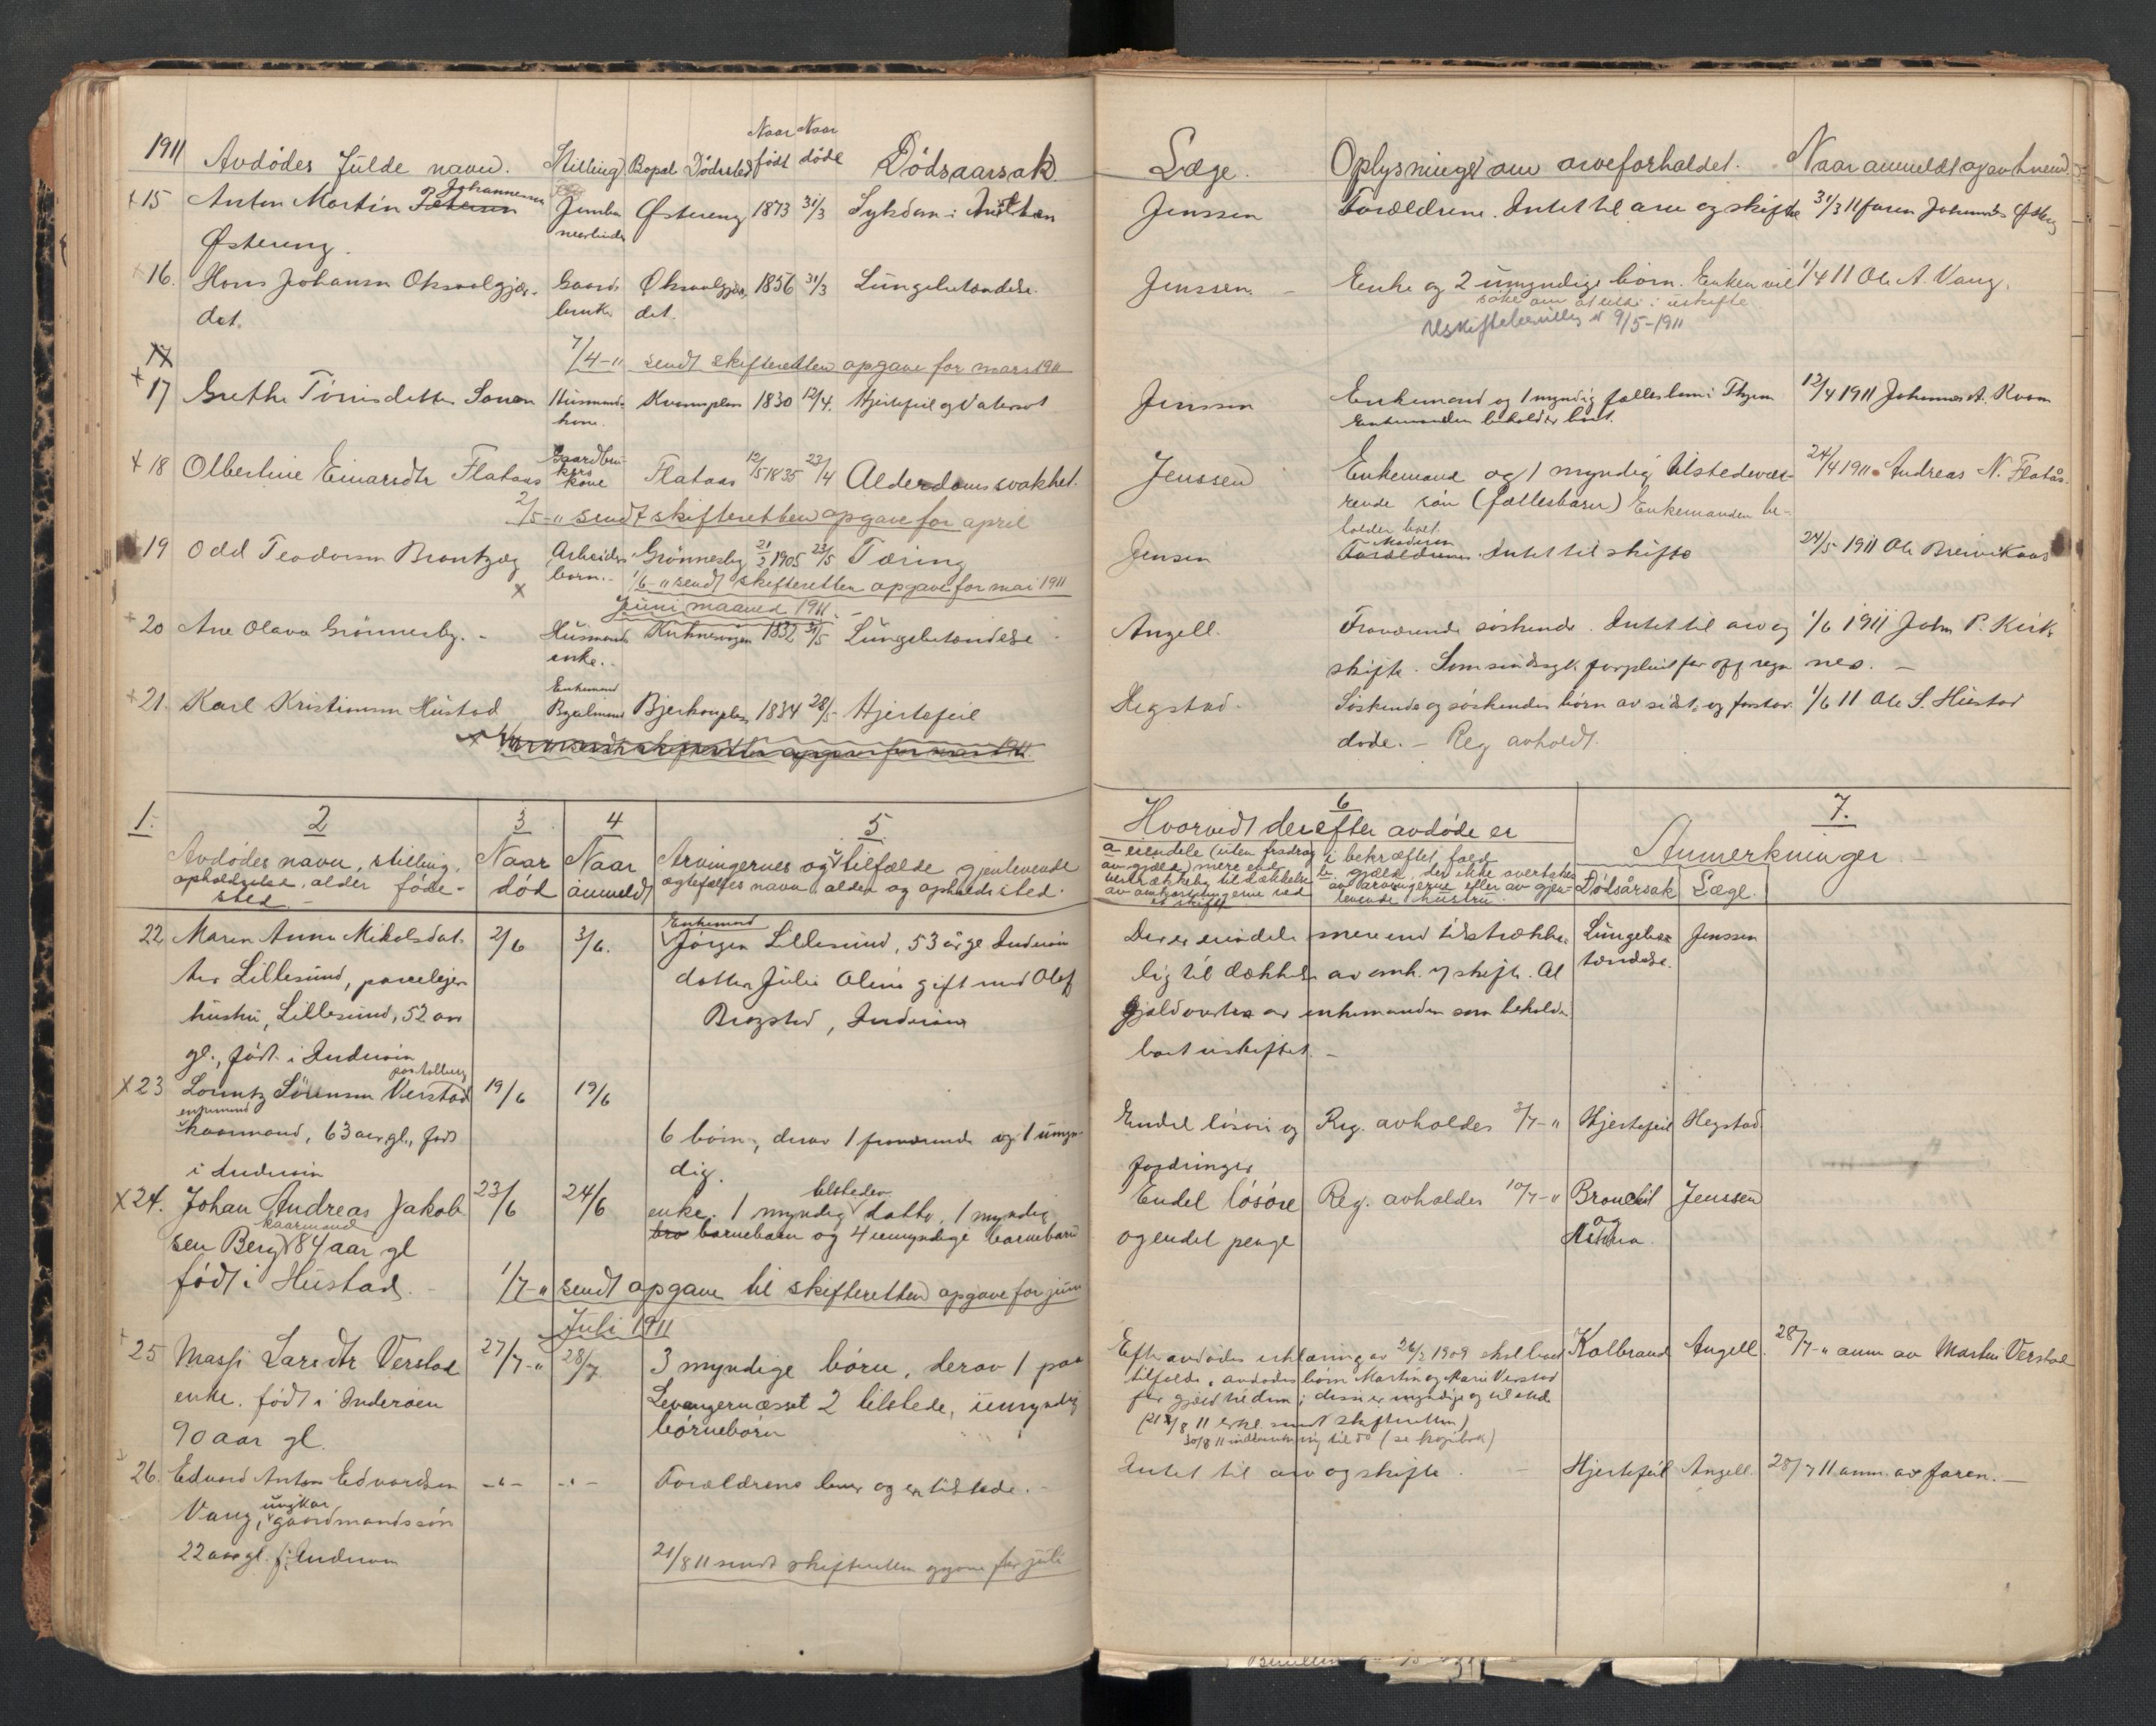 1911 Avdødes fulde navn. Stilling Bopæl Dødssted Naar født Naar døde Dødsaarsak.
+15 Anton Martin Johannesen Østereng 1873 31/3 Sygdom i
Østereng.
16. Hans Johansen Gaard- 1856 31/3 Lungebetændelse.
det. bruker det.
17
7/4-11 sendt skifteretten opgave for mars 1911
+17 Grethe Husmands Kvamsplass 1830 12/4. Hjertefeil og Vatersot
kone.
+18 Olbertine Einarsdtr Flataas Gaardbru-
kers
kone Flataas 12/5 1835 23/4 Alderdomssvakhet.
2/5-11 sendt skifteretten opgave for april
19 Odd Teodorsen Arbeiders Grønnesby 21/2 1905 23/5 Tæring
barn. 1/6-11 sendt skifteretten opgave for mai 1911
Juni maaned 1911.
+20 Ane Olava Grønnesby. Husmands 1832 31/5 Lungebetændelse
enke.
+21. Karl Kristiansen Hustad Enkemand Bjerkemplass 1834 28/5 Hjertefeil
1. 2 3 4 5
Avdødes navn, stilling, Naar Naar Arvingernes og i tilfælde gjenlevende
opholdssted, alder føde- død anmeldt ægtefælles navn alder og opholdssted.
sted.
22 Maren Anna Mikalsdat- 2/6 3/6. Enkemand
Jørgen Lillesund, 53 år
ter Lillesund, parceleier datter Julie gift med Olaf
hustru, Lillesund, 52 aar Inderøen
gl., født i Inderøen
X23 Lorentz Sørensen Verstad 19/6 19/6
enkemand
kaarmand, 63 aar gl., født 6 børn, derav 1 fraværende og 1 umyn-
i Inderøen dig.
X24. Johan Andreas Jakob 23/6 24/6 enke. 1 myndig tilstedev. datter, 1 myndig
kaarmand
sen Berg 84 aar gl barnebarn og 4 umyndige barnebarn
født i Hustad. 1/7-11 sendt opgave til skifteretten opgave for juni
Juli 1911
25 Massi Larsdtr Verstad 27/7-11 28/7 3 myndige børn, derav 1 paa
enke. født i Inderøen Levangernæsset 2 tilstede, umyndig
90 aar gl. børnebørn
26. Edvard Anton Edvardsen -"- -"- Forældrene lever og er tilstede.
Vang, ungkar, gaardmandssøn
22 aar gl. f. i Inderøen
21/8 11 sendt skifteretten opgave for juli
Læge. Oplysninger om arveforholdet. Naar anmeldt og av hvem.
Jenssen Forældrene. Intet til arv og skifte 31/3 11 faren
Jenssen. Enke og 2 umyndige børn. Enken vil 1/4 11 Ole A. Vang.
søke om at sitte i uskifte
Uskiftebevilling 9/5-1911
Jenssen Enkemand og 1 myndig fællesbarn i 12/4 1911 Johannes A. Kvam
Enkemanden beholder boet.
Jenssen Enkemand og 1 myndig tilstedevæ- 24/4 1911. Andreas N. Flatås.
rende søn (fællesbarn) Enkemanden be-
holder boet.
Jenssen Moderen Forældrene. Intet til skifte 24/5 1911 Ole
Angell. Fraværende søskende. Intet til arv og 1/6 1911 John P. Kirk-
skifte. Som sindssyk forpleiet for off regn nes.
Hegstad. Søskende og søskendes børn av sidst og forstav. 1/6 11 Ole S. Hustad
døde. - Reg avholdt.
6 7.
Hvorvidt der efter avdøde er Anmerkninger.
a eiendele (uten fradrag i bekræftet fald
av gjæld) mere end b. gjæld, der ikke overtages
tilstrækkelig til dækkelse av arvingerne eller av gjen-
av omkostningerne ved levende hustru. Dødsårsak Læge.
et skifte
Der er eiendele mere end tilstrække- Lungebe- Jenssen
lig til dækkelse av omk. v skifte. Al tændelse.
gjæld overtas av enkemanden som beholder
boet uskiftet.
Endel løsøre og Reg. avholdes 3/7-11 Hjertefeil Hegstad
fordringer
Endel løsøre Reg. avholdes 10/7-11 Bronchit Jenssen
og endel penge og
Asthma.
Efter avdødes erklæring av 26/2 1909 skal boet Koldbrand Angell. 28/7-11 anm av Martin Verstad
tilfalde avdødes børn Martin og Marie Verstad
for gjæld til dem; disse er myndige og tilstede
(21/8 11 erkl. sendt skifteretten)
Intet til arv og skifte. Hjertefeil Angell. 28/7 11 anm. av faren.